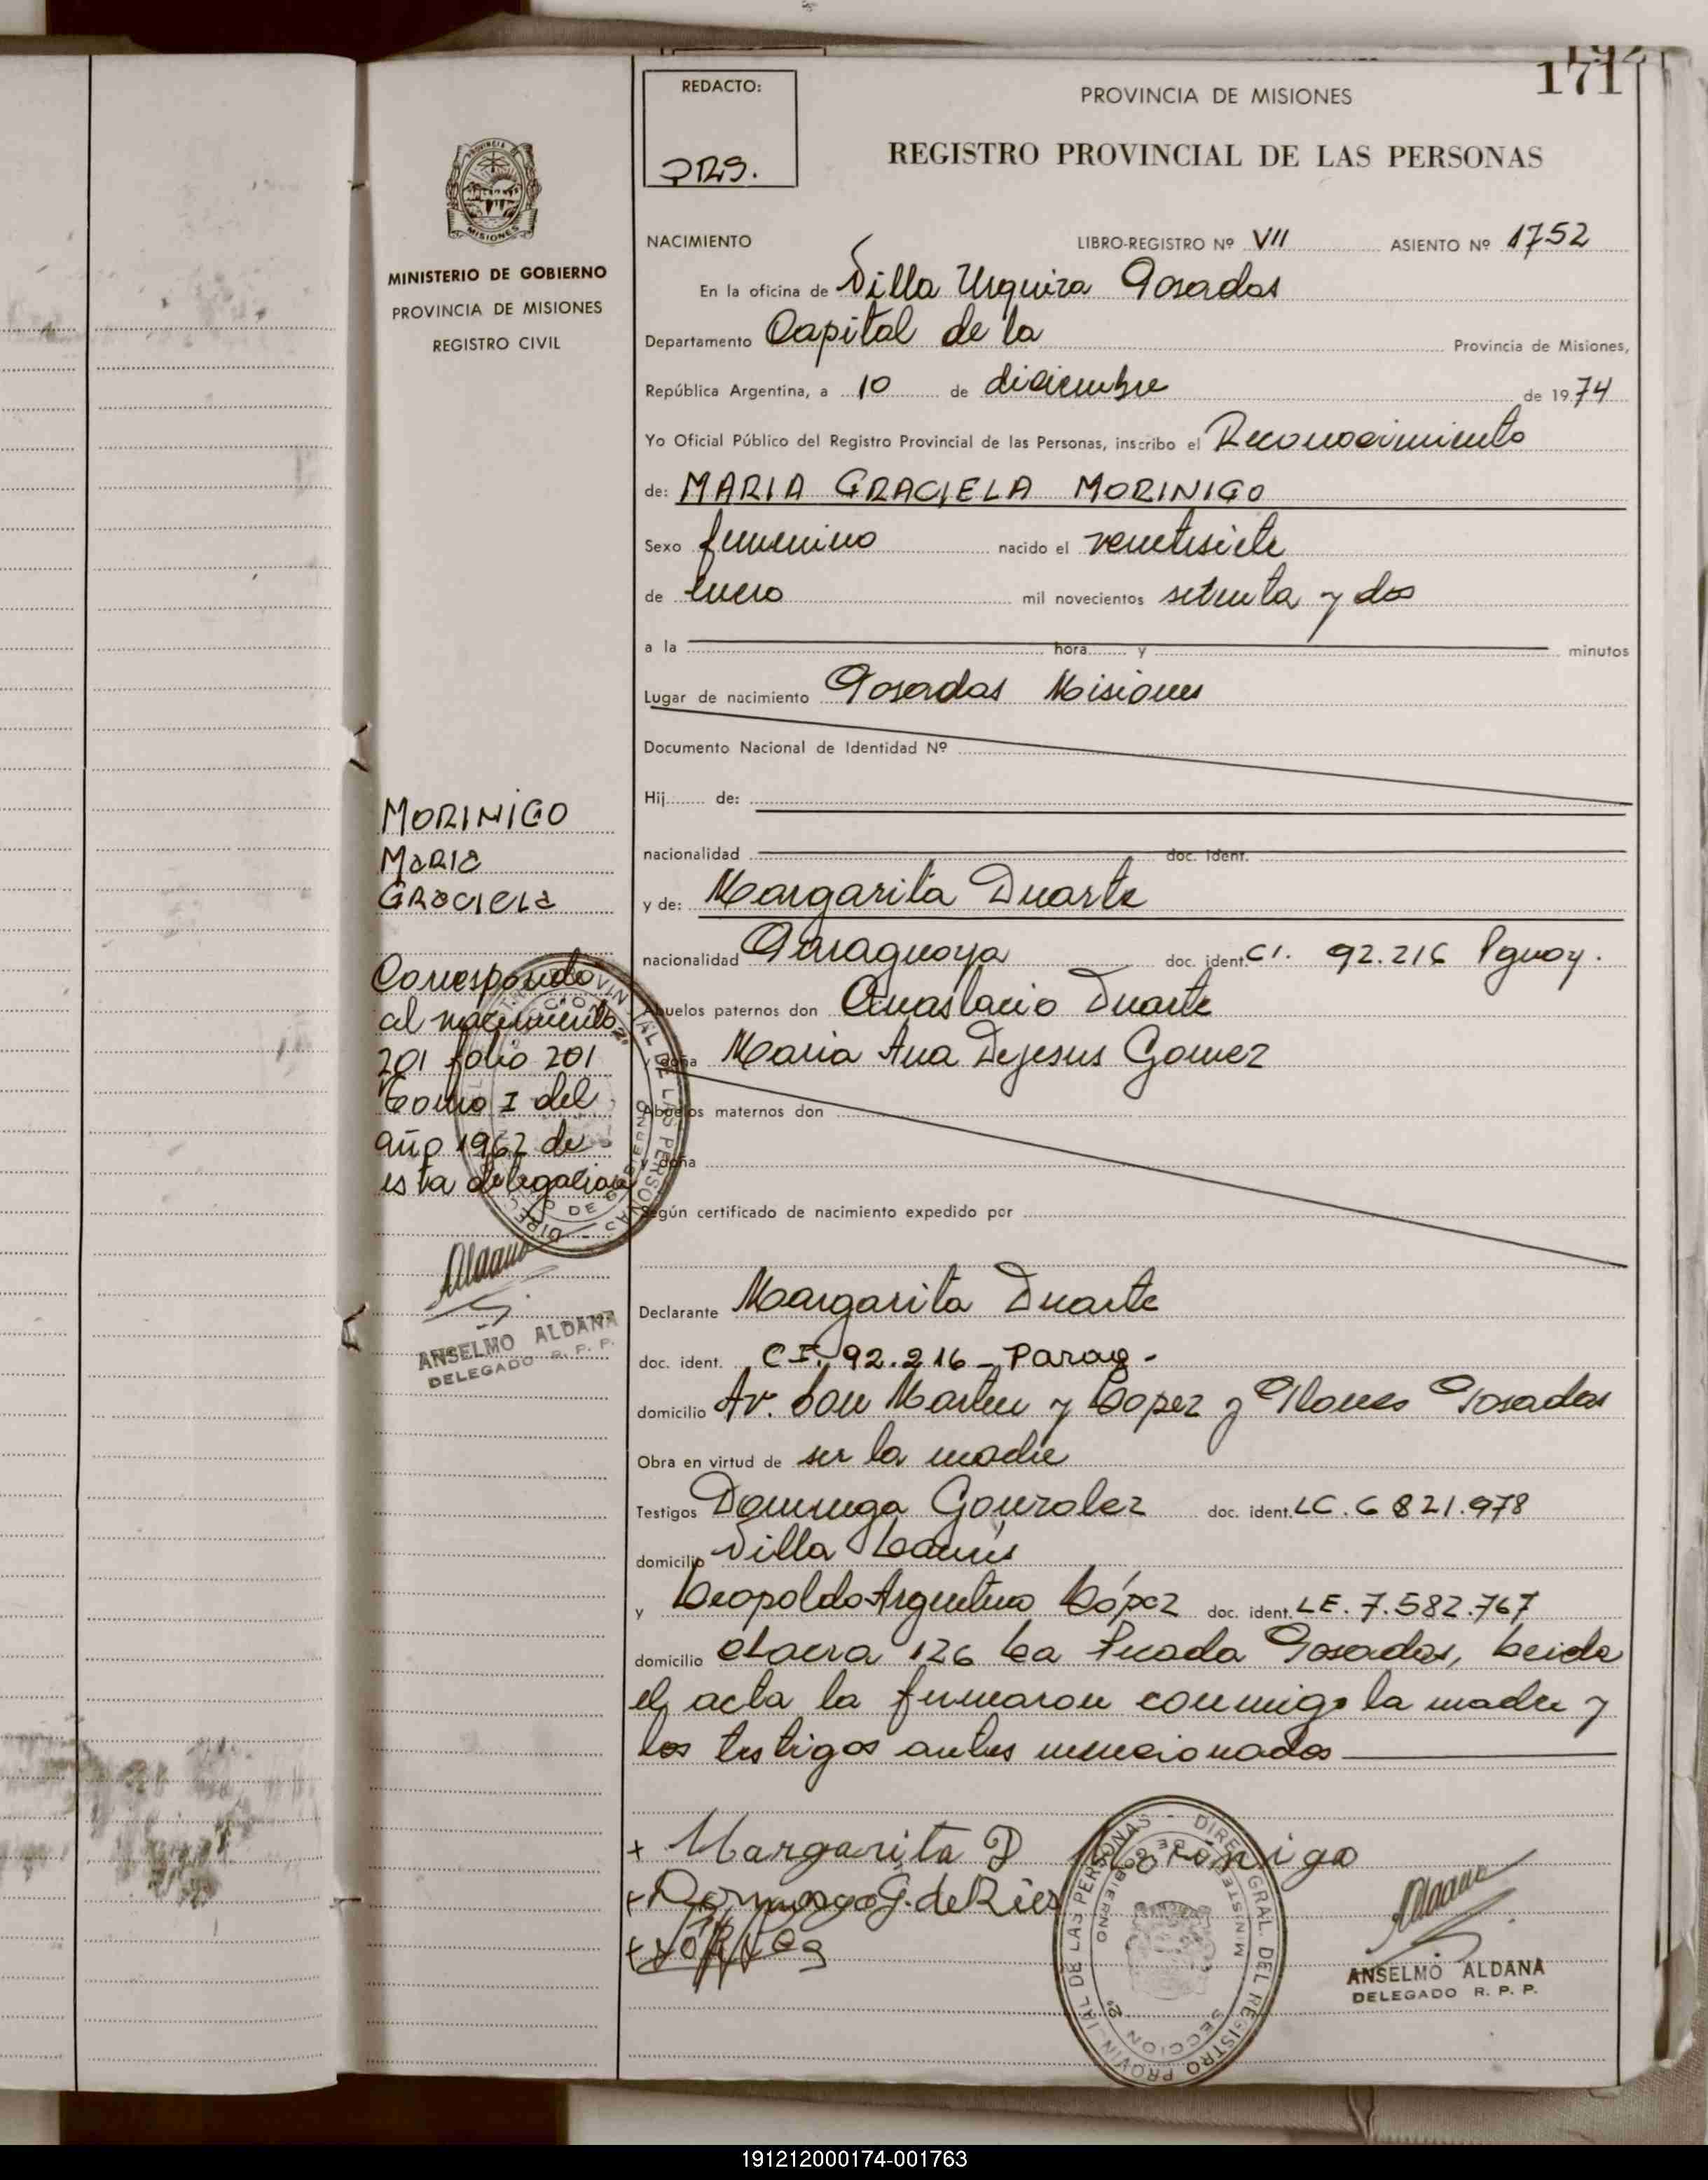 192
171
REDACTO:
PROVINCIA DE MISIONES
REGISTRO PROVINCIAL DE LAS PERSONAS
PROVINCIA DE
MISIONES
MINISTERIO DE GOBIERNO
PROVINCIA DE MISIONES
REGISTRO CIVIL
NACIMIENTO LIBRO-REGISTRO Nº VII ASIENTO Nº 1752
En la oficina de Villa Urquiza Posadas
Departamento Capital de la Provincia de Misiones,
República Argentina, a 10 de diciembre de 1974
Yo Oficial Público del Registro Provincial de las Personas, inscribo el Reconocimiento
de: MARIA GRACIELA MORINIGO
Sexo femenino nacido el veintisiete
de Enero mil novecientos setenta y dos
a la hora y minutos
Lugar de nacimiento Posadas Misiones
Documento Nacional de Identidad Nº
Hij de:
nacionalidad doc. ident.
y de: Margarita Duarte
nacionalidad Paraguaya doc. ident. CI. 92.216 Pguay.
Abuelos paternos don Anastacio Duarte
y doña Maria Ana Dejesus Gomez
Abuelos maternos don
y doña
Según certificado de nacimiento expedido por
Declarante Margarita Duarte
doc. ident. CI. 92.216 - Parag -
domicilio Av. San Martin y Lopez y Planes Posadas
Obra en virtud de ser la madre
Testigos Dominga Gonzalez doc. ident. LC. 6 821.978
domicilio Villa Lanús
y Leopoldo Argentino López doc. ident. LE. 7.582.767
domicilio chacra 126 La Picada Posadas, Leida
el acta la firmaron conmigo la madre y
los testigos antes mencionados
MORINIGO
MARIA
GRACIELA
Corresponde
al nacimiento
201 folio 201
tomo I del
año 1962 de
esta delegacion
Aldana
ANSELMO ALDANA
DELEGADO R. P. P.
+ Margarita D Morinigo
G. de Rios
DIREC. GRAL. DEL REGISTRO PROVINCIAL DE LAS PERSONAS
MINISTERIO DE GOBIERNO
SECCION 2ª
Aldana
ANSELMO ALDANA
DELEGADO R. P. P.
191212000174-001763